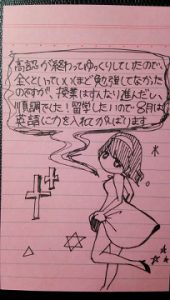 高認が終わってゆっくりしていたので、
全くといっていいほど勉強してなかった
のですが、授業はすんなり進んだし、
順調でした!留学したいので8月は
英語に力を入れてがんばります